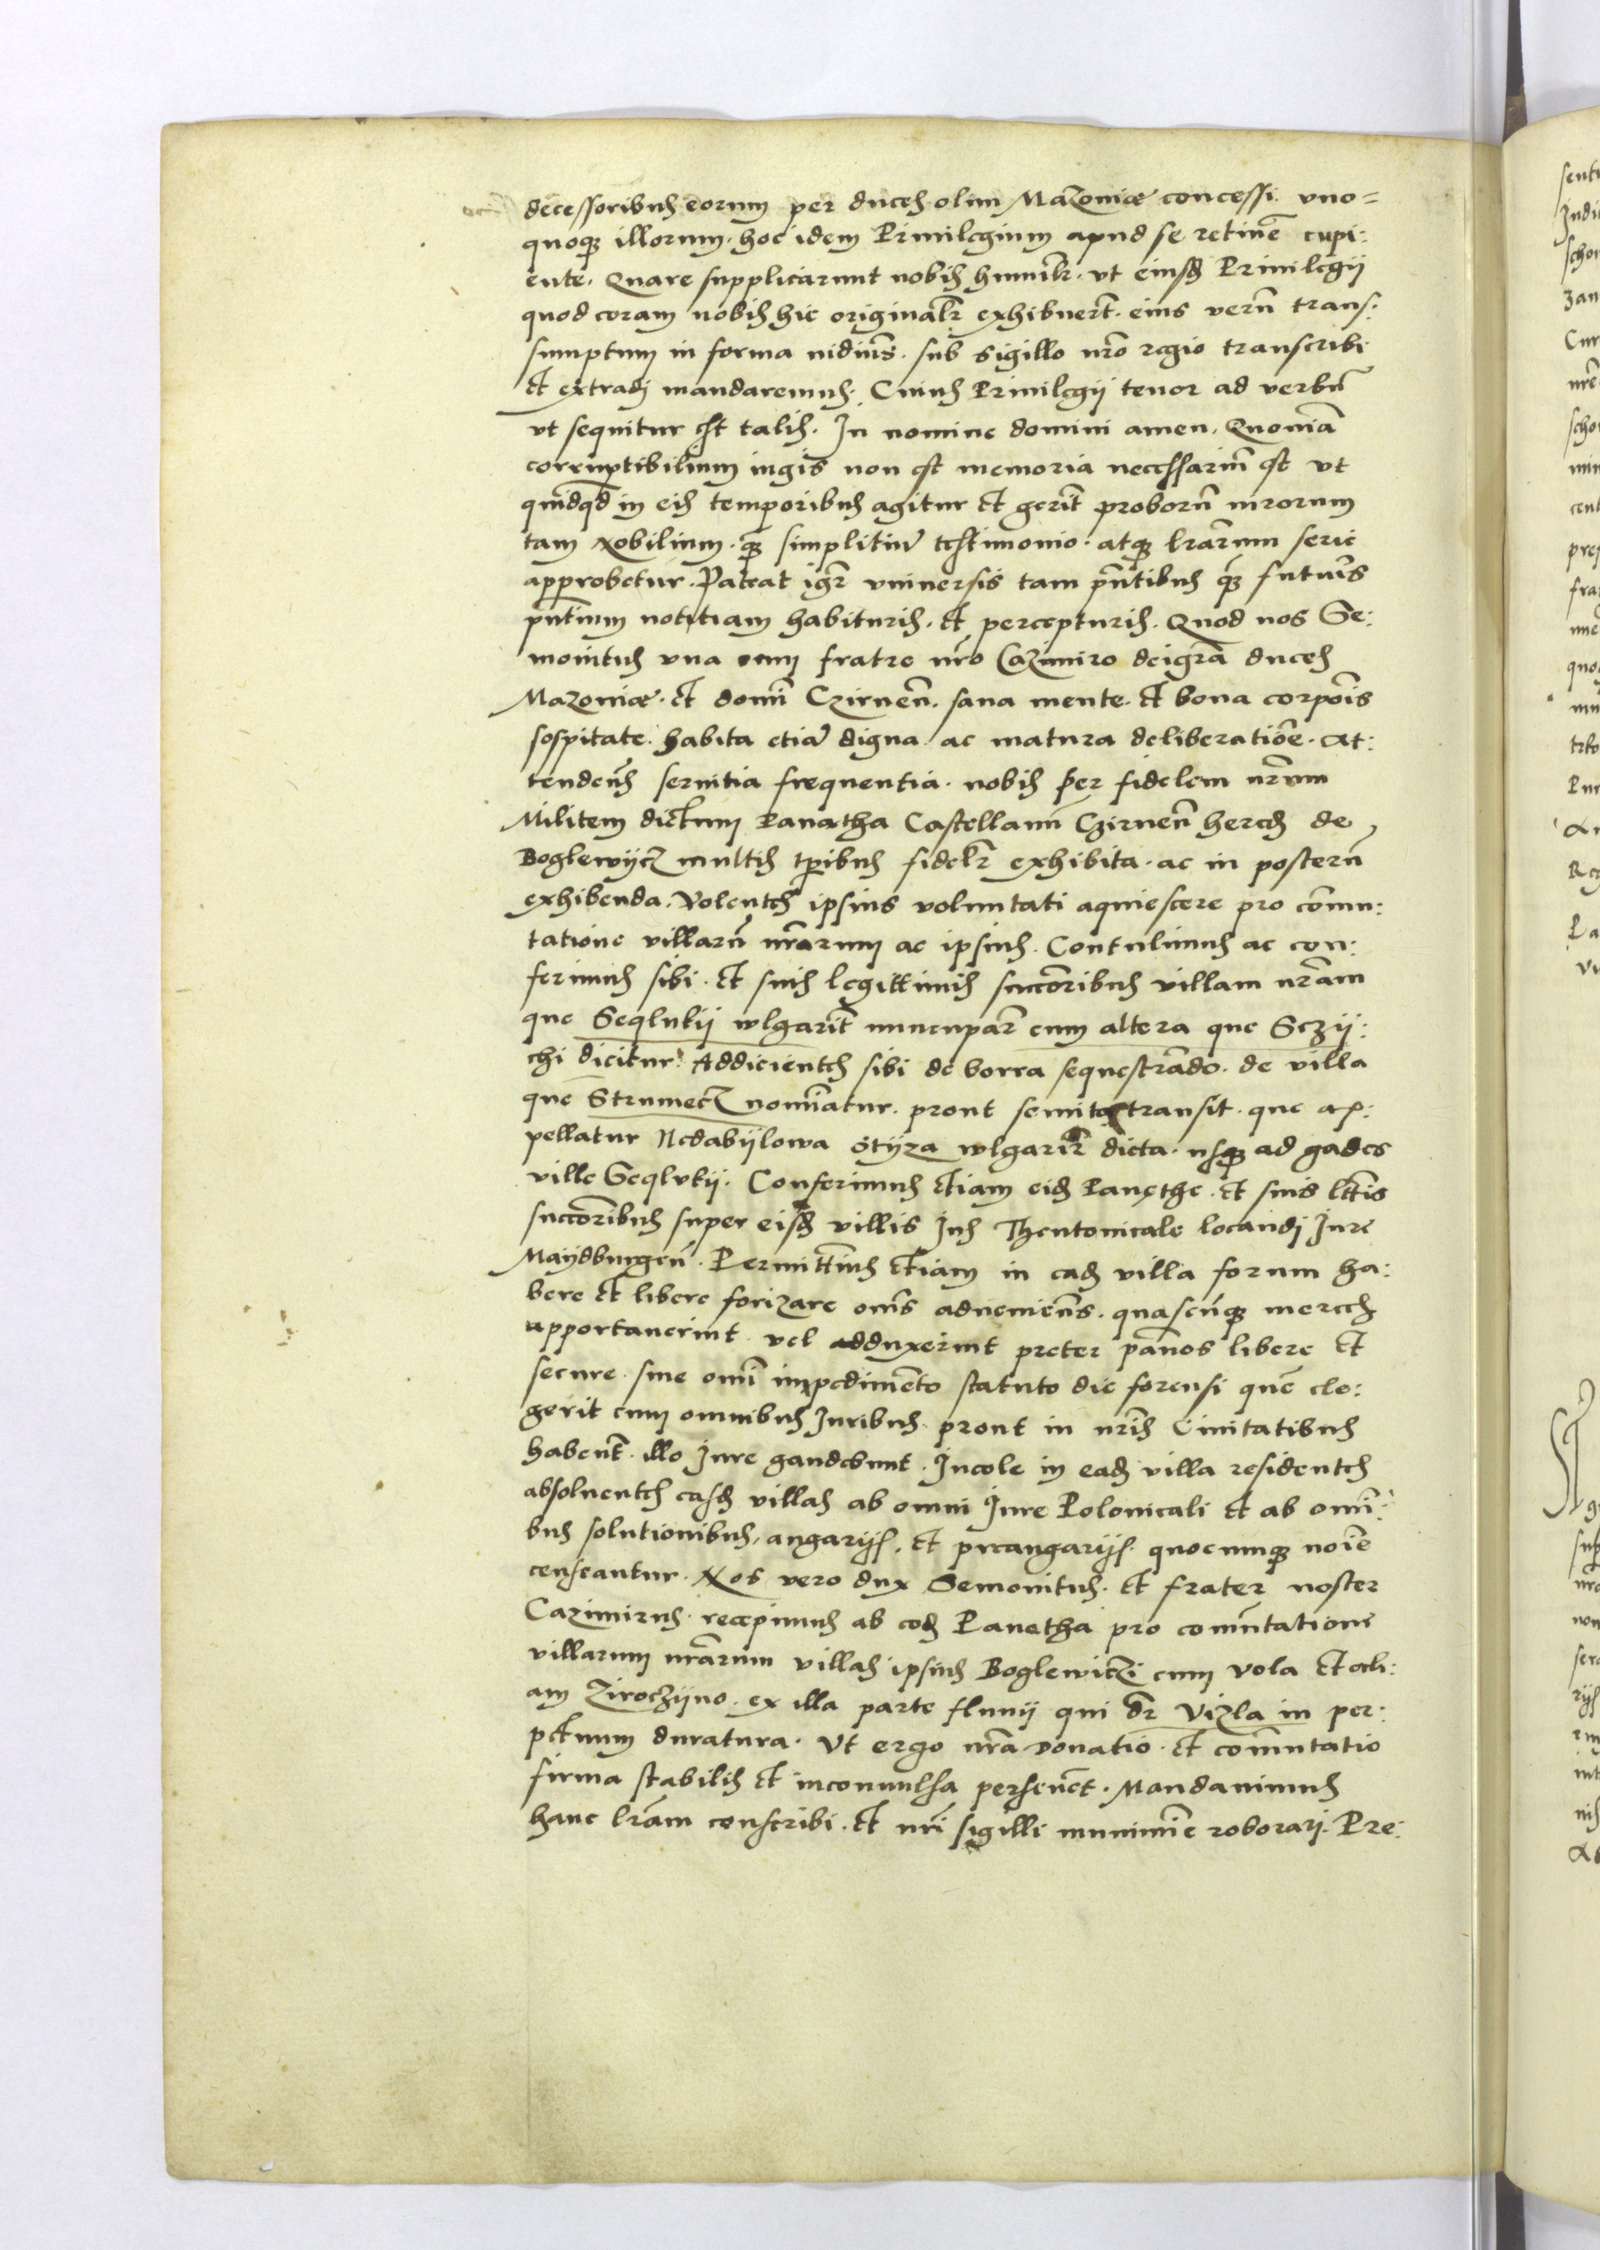 decessoribus eorum per duces olim Mazoviæ concessi. uno=
quoqʒ illorum. hoc idem Privilegium apud se retinē̄ cupi:
ente. Quare supplicarunt nobis humilr̄. ut eiusd̄ Privilegii
quod coram nobis hic originalr̄ exhibuert̄. eius verū trans:
sumptum in forma sub sigillo nr̄o regio transcribi
et extradi mandaremus. Cuius Privilegii tenor ad verbū
ut sequitur est talis. In nomine domini amen. Quoniā
corruptibilium iugis non est memoria necessariū est ut
quidqd̄ in eis temporibus agitur et gerit̄ proborū virorum
tam Nobilium. qʒ simplitiū testimonio. atqʒ lr̄arum serie
approbetur. Pateat igr̄ universis tam pn̄tibus qʒ futuris
pn̄tium notitiam habituris. et percepturis. Quod nos Se:
movitus una cum fratre nr̄o Cazimiro dei grā duces
Mazoviæ. et domī Czirnen̄. sana mente. et bona corpōis
sospitate. habita etiā digna. ac matura deliberatiōe. At:
tenden̄s servitia frequentia. nobis per fidelem nr̄um
Militem dictum Panatha Castellanū Czirnen̄ heres de
Boglewijcz multis tp̄ibus fidelr̄ exhibita. ac in posterū
exhibenda. Volentes ipsius voluntati aquiescere pro com̄u:
tatione villarū nr̄arum ac ipsius. Contulimus ac con:
ferimus sibi. et suis legittimis succōribus villam nr̄am
que Seqlukij wlgarit̄ nuncupar̄ cum altera que Sczij:
chi dicitur. Addicientes sibi de borra sequestrādo. de villa
que Strumecz nomīatur. prout semita transit. que ap:
pellatur Nedabijlowa Stijza wlgarir̄ dicta. usqʒ ad gades
ville Seqlukij. Conferimus etiam eid̄ Panęthe. et suis lt̄tis
succōribus super eisd̄ villis Jus Theutonicale locandi Jure
Maijdburgen̄. Permittim̄s etiam in ead̄ villa forum ha:
bere et libere forizare om̄s advenien̄s. quascūqʒ merces
apportaverint. vel adduxerint preter pān̄os libere et
secure. sine omī impedimēto statuto die forensi quē ele:
gerit cum omnibus Juribus. prout in nr̄is Civitatibus
habent̄. illo Jure gaudebunt. Incole in ead̄ villa residentes
absolventes easd̄ villas ab omni Jure Polonicali et ab omī:
bus solutionibus, angarijs. et preangarijs. quocumqʒ noīe
censeantur. Nos vero dux Semovitus. et frater noster
Cazimirus. recepimus ab eod̄ Panetha pro com̄utatione
villarum nr̄arum villas ipsius Boglewiczi cum Vola et ali:
am Zirochijno. ex illa parte fluvij qui dr̄ Vizla in per:
petuum duratura. Ut ergo nr̄a donatio. et com̄utatio
firma stabilis et inconvulsa persevēt. Mandavimus
hanc lr̄am conscribi. et nr̄i sigilli munimīe roborari. Pre: